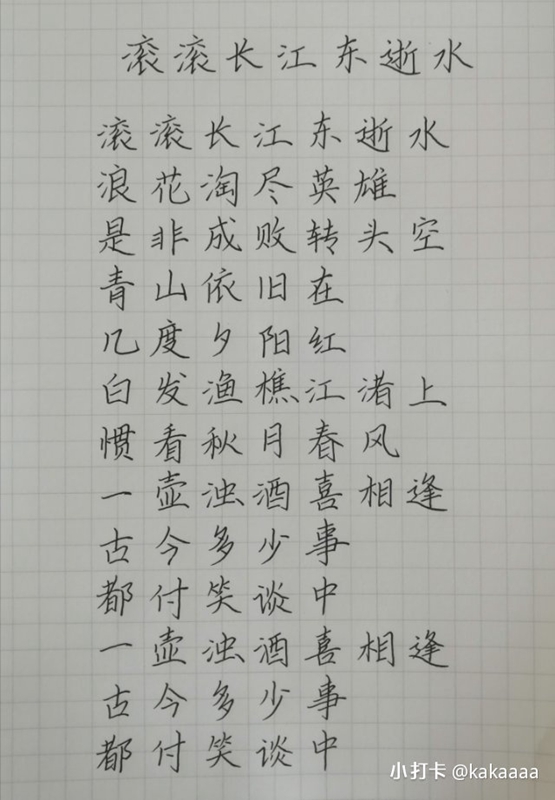 滚滚长江东逝水
滚滚长江东逝水
浪花淘尽英雄
是非成败转头空
青山依旧在
几度夕阳红
白发渔樵江渚上
惯看秋月春风
一壶浊酒喜相逢
古今多少事
都付笑谈中
一壶浊酒喜相逢
古今多少事
都付笑谈中
小打卡 @kakaaaa